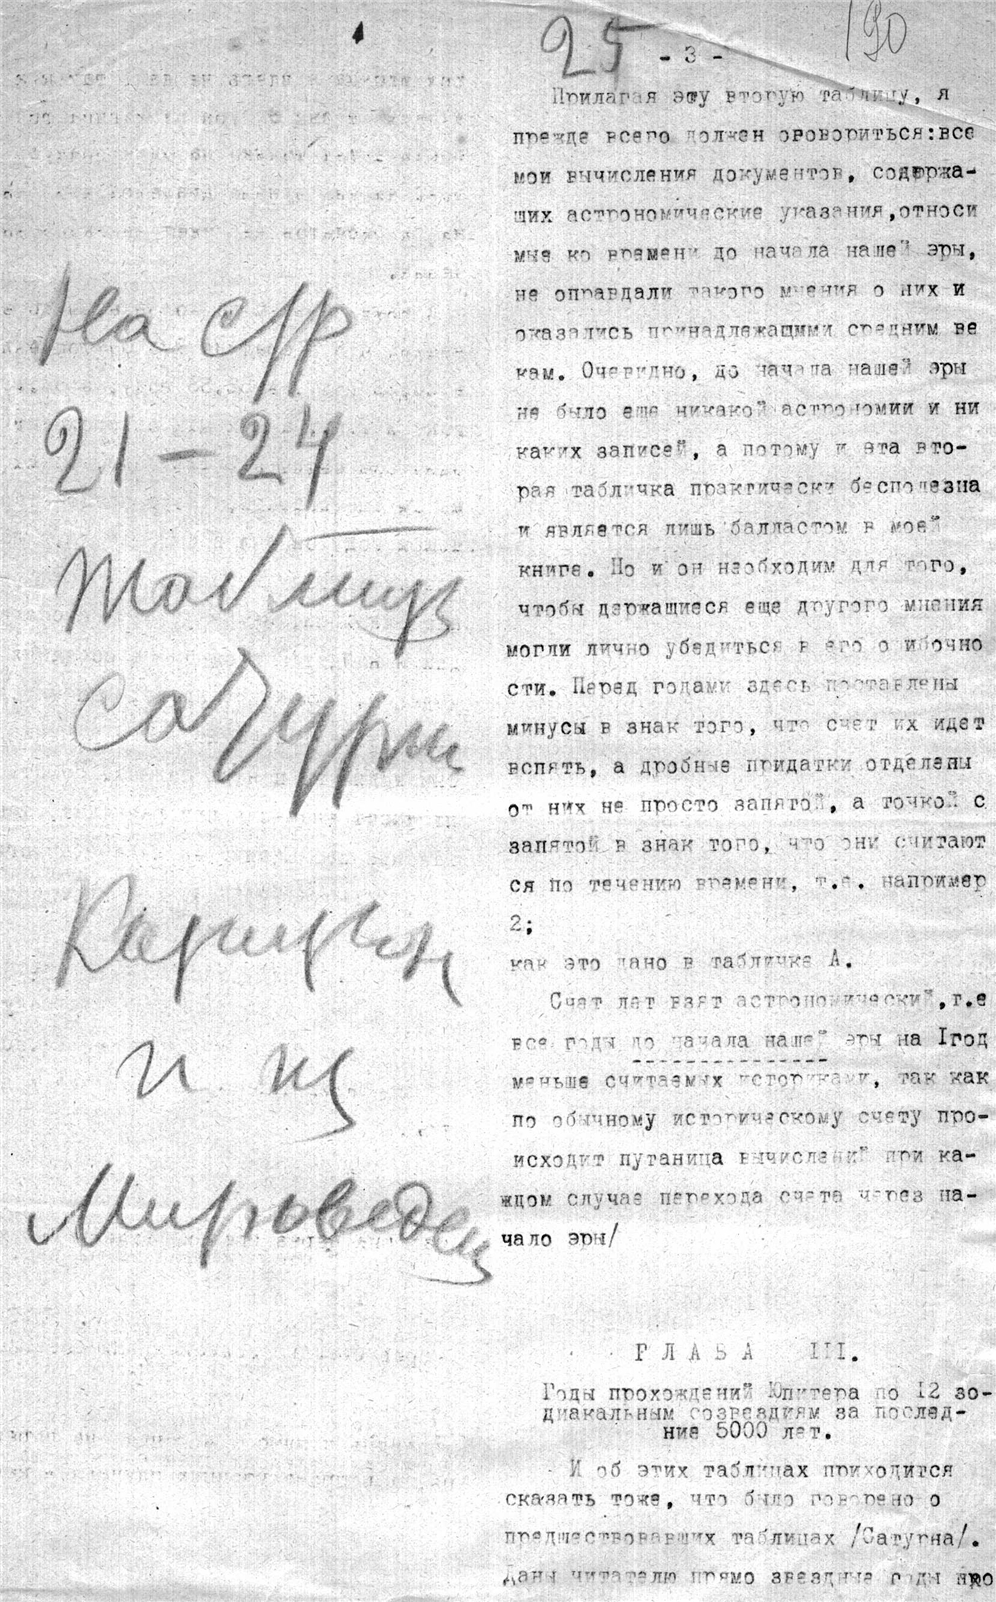 25
190
- 3 -
Прилагая эту вторую таблицу, я
прежде всего должен оговориться:все
мои вычисления документов, содержа-
щих астрономические указания,относи
мые ко времени до начала нашей эры,
не оправдали такого мнения о них и
оказались принадлежащими средним ве
кам. Очевидно, до начала нашей эры
не было еще никакой астрономии и ни
каких записей, а потому и эта вто-
рая табличка практически бесполезна
и является лишь балластом в моей
книге. Но и он необходим для того,
чтобы держащиеся еще другого мнения
могли лично убедиться в его о ибочно
сти. Перед годами здесь поставлены
минусы в знак того, что счет их идет
вспять, а дробные придатки отделены
от них не просто запятой, а точкой с
запятой в знак того, что они считают
ся по течению времени, т.е. например
2;
как это дано в табличке А.
Счет лет взят астрономический,т.е
все годы до начала нашей эры на Iгод
меньше считаемых историками, так как
по обычному историческому счету про-
исходит путаница вычислений при ка-
ждом случае перехода счета через на-
чало эры/
ГЛАВА III.
Годы прохождений Юпитера по 12 зо-
диакальным созвездиям за послед-
ние 5000 лет.
И об этих таблицах приходится
сказать тоже, что было говорено о
предшествовавших таблицах /Сатурна/.
Даны читателю прямо звездные годы про
На стр
21 - 24
таблица
Сатурн
из
Мироведен